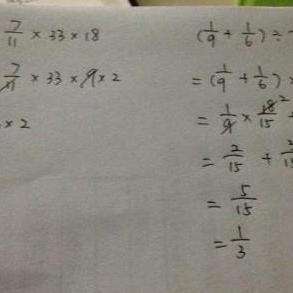 7/11 × 33 × 18
7/11 × 33 × 9 × 2
× 2
(1/9 + 1/6) ÷
= (1/9 + 1/6) ×
= 1/9 × 18/15 2
= 2/15 + 
= 5/15
= 1/3